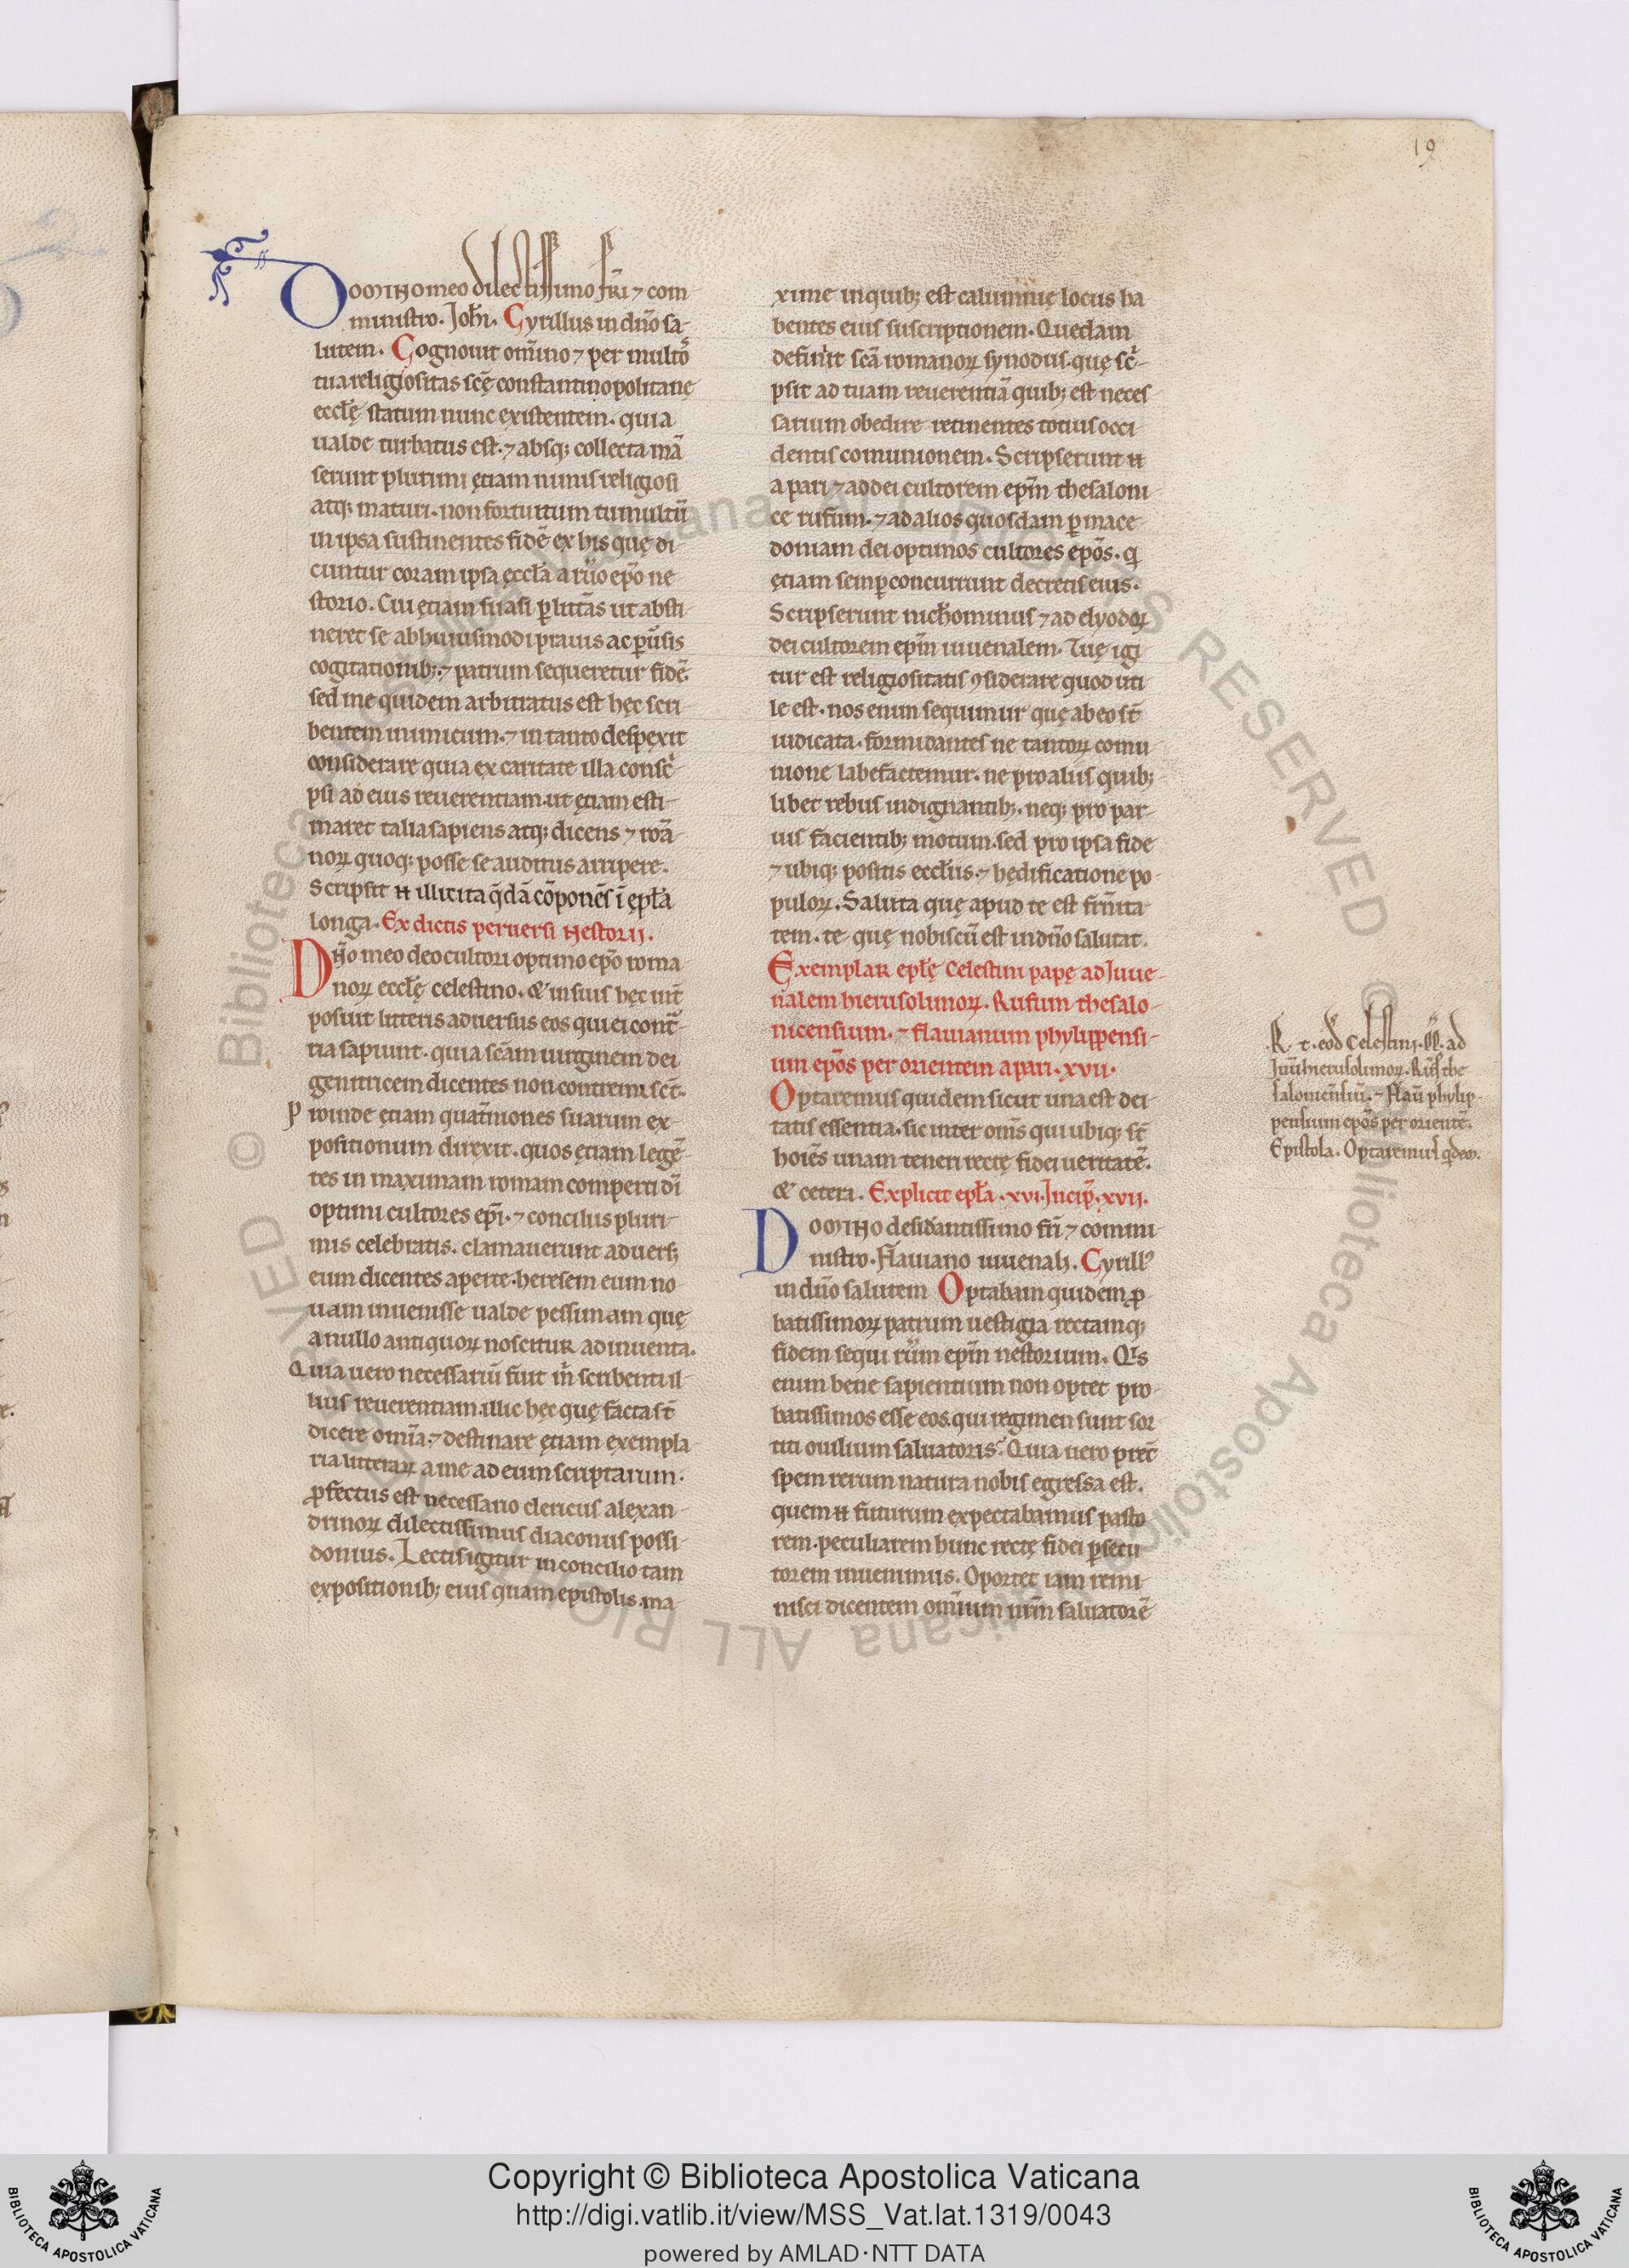 19
Domino meo dilectissimo fr̄i ⁊ com-
ministro. Joh̄i. Cyrillus in dn̄o sa-
lutem. Cognouit om̄ino ⁊ per multoꝝ
tua religiositas scę̄ constantinopolitanę
eccl̄ę statum nunc existentem. quia
ualde turbatus est. ⁊ absq; collecta mā
serunt plurimi ętiam nimis religiosi
atq; maturi. non fortuitum tumultū
in ipsa sustinentes fidē ex his quę di
cuntur coram ipsa ęccl̄a a riio ep̄o ne
storio. Cui ętiam suasi ꝑ litt̄as ut absti
neret se ab huiusmodi prauis ac ꝑuersis
cogitationib;. ⁊ patrum sequeretur fidē.
sed me quidem arbitratus est hęc scri
bentem inimicum. ⁊ in tanto despexit
considerare quia ex caritate illa consc̄
psi ad eius reuerentiam. ut ętiam esti-
maret talia sapiens atq; dicens ⁊ romā
noꝝ quoq; posse se auditus arripere.
Scripsit n̄ illicita q̄dā cōponēs ī ępl̄a
longa. Ex dictis peruersi nestorij.
Dn̄o meo deo cultori optimo ep̄o roma-
noꝝ eccl̄ę celestino. & in suis hęc int̄
posuit litteris aduersus eos qui ei cont̄-
ria sapiunt. quia scām uirginem dei
genitricem dicentes non contremisc̄t.
proinde ętiam quat̄niones suarum ex-
positionum direxit. quos ętiam legē-
tes in maximam romam comperti dī
optimi cultores ep̄i. ⁊ conciliis pluri-
mis celebratis. clamauerunt aduers;
eum dicentes aperte. heresem eum no
uam inuenisse ualde pessimam quę
a nullo antiquoꝝ noscitur adinuenta.
Quia uero necessariū fuit m̄ scribenti il-
lius reuerentiam. illic hęc quę facta st̄
dicere om̄ia. ⁊ destinare ętiam exempla
ria litteraꝝ a me ad eum scriptarum.
ꝓfectus est necessario clericus alexan-
drinoꝝ dilectissimus diaconus possi-
donius. Lectis igitur in concilio tam
expositionib; eius quam epistolis. ma-
xime in quib; est calumnię locus ha
bentes eius suscriptionem. Quedam
definiit scā romanoꝝ synodus. quę sc̄-
psit ad tuam reuerentiā quib; est neces
sarium obedire retinentes totius occi
dentis comunionem. Scripserunt n̄
a pari ⁊ ad dei cultorem ep̄m thesaloni-
ce rufum. ⁊ ad alios quosdam ꝑ mace
doniam dei optimos cultores ep̄os. qi
ętiam semꝑ concurrunt decretis eius.
Scripserunt nich̄ominus ⁊ ad elyodoꝝ
dei cultorem ep̄m iuuenalem. Tuę igi
tur est religiositatis ꝯsiderare quod uti
le est. nos enim sequimur quę ab eo st̄
iudicata. formidantes ne tantoꝝ comu
nione labefactemur. ne pro aliis quib;
libet rebus indignantib;. neq; pro par-
uis facientib; motum. sed pro ipsa fide
⁊ ubiq; positis eccl̄iis. ⁊ hędificatione po-
puloꝝ. Saluta quę apud te est frn̄ita
tem. te quę nobiscū est in dn̄o salutat.
Exemplar epl̄ę Celestini papę ad Juue-
nalem hierusolimoꝝ. Rufum thesalo-
nicensium. ⁊ flauianum phylippensi-
um ep̄os per orientem a pari. xvii.
Optaremus quidem sicut una est dei-
tatis essentia. sic inter om̄s qui ubiq; st̄
hoiēs unam teneri rectę fidei ueritatē.
& cetera. Explicit epl̄a. xvi. Incip̄. xvij.
Domino desid̄antissimo fr̄i ⁊ commi-
nistro. Flauiano iuuenali. Cyrill᾽
in dn̄o salutem Optabam quidem ꝓ-
batissimoꝝ patrum uestigia rectamq;
fidem sequi riim ep̄m nestorium. Qis
enim bene sapientium non optet pro-
batissimos esse eos. qui regimen sunt sor
titi ouilium saluatoris? Quia uero pret̄
spem rerum natura nobis egressa est.
quem n̄ futurum expectabamus pasto
rem. peculiarem hunc rectę fidei ꝑsecu
torem inuenimus. Oportet iam remi-
nisci dicentem om̄ium nr̄m saluatorē
R. t. eod Celestini. pp. ad
Juū hierusolimoꝝ. Ruf̄ the
salonicēsiū. ⁊ Flauī phylip-
pensium ep̄os per orientē.
Epistola. Optaremus qdem.
Copyright © Biblioteca Apostolica Vaticana
http://digi.vatlib.it/view/MSS_Vat.lat.1319/0043
powered by AMLAD·NTT DATA
BIBLIOTECA APOSTOLICA VATICANA
BIBLIOTECA APOSTOLICA VATICANA
© Biblioteca Apostolica Vaticana ALL RIGHTS RESERVED © Biblioteca Apostolica Vaticana ALL RIGHTS RESERVED